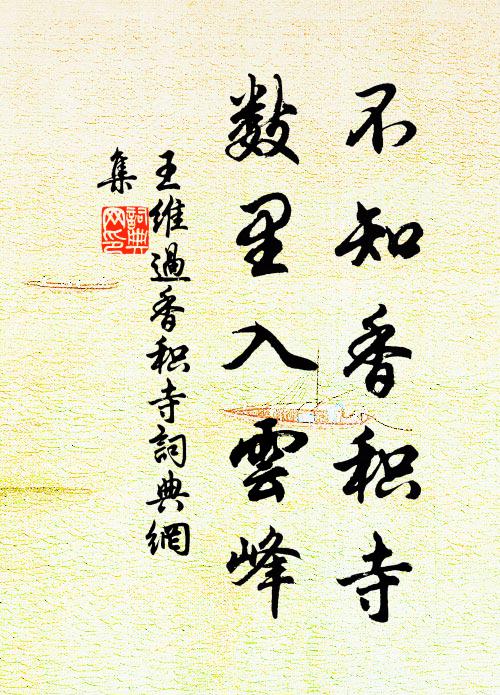 不知香积寺
数里入雲峰
王維過香积寺詞典網
集
詞典
网印